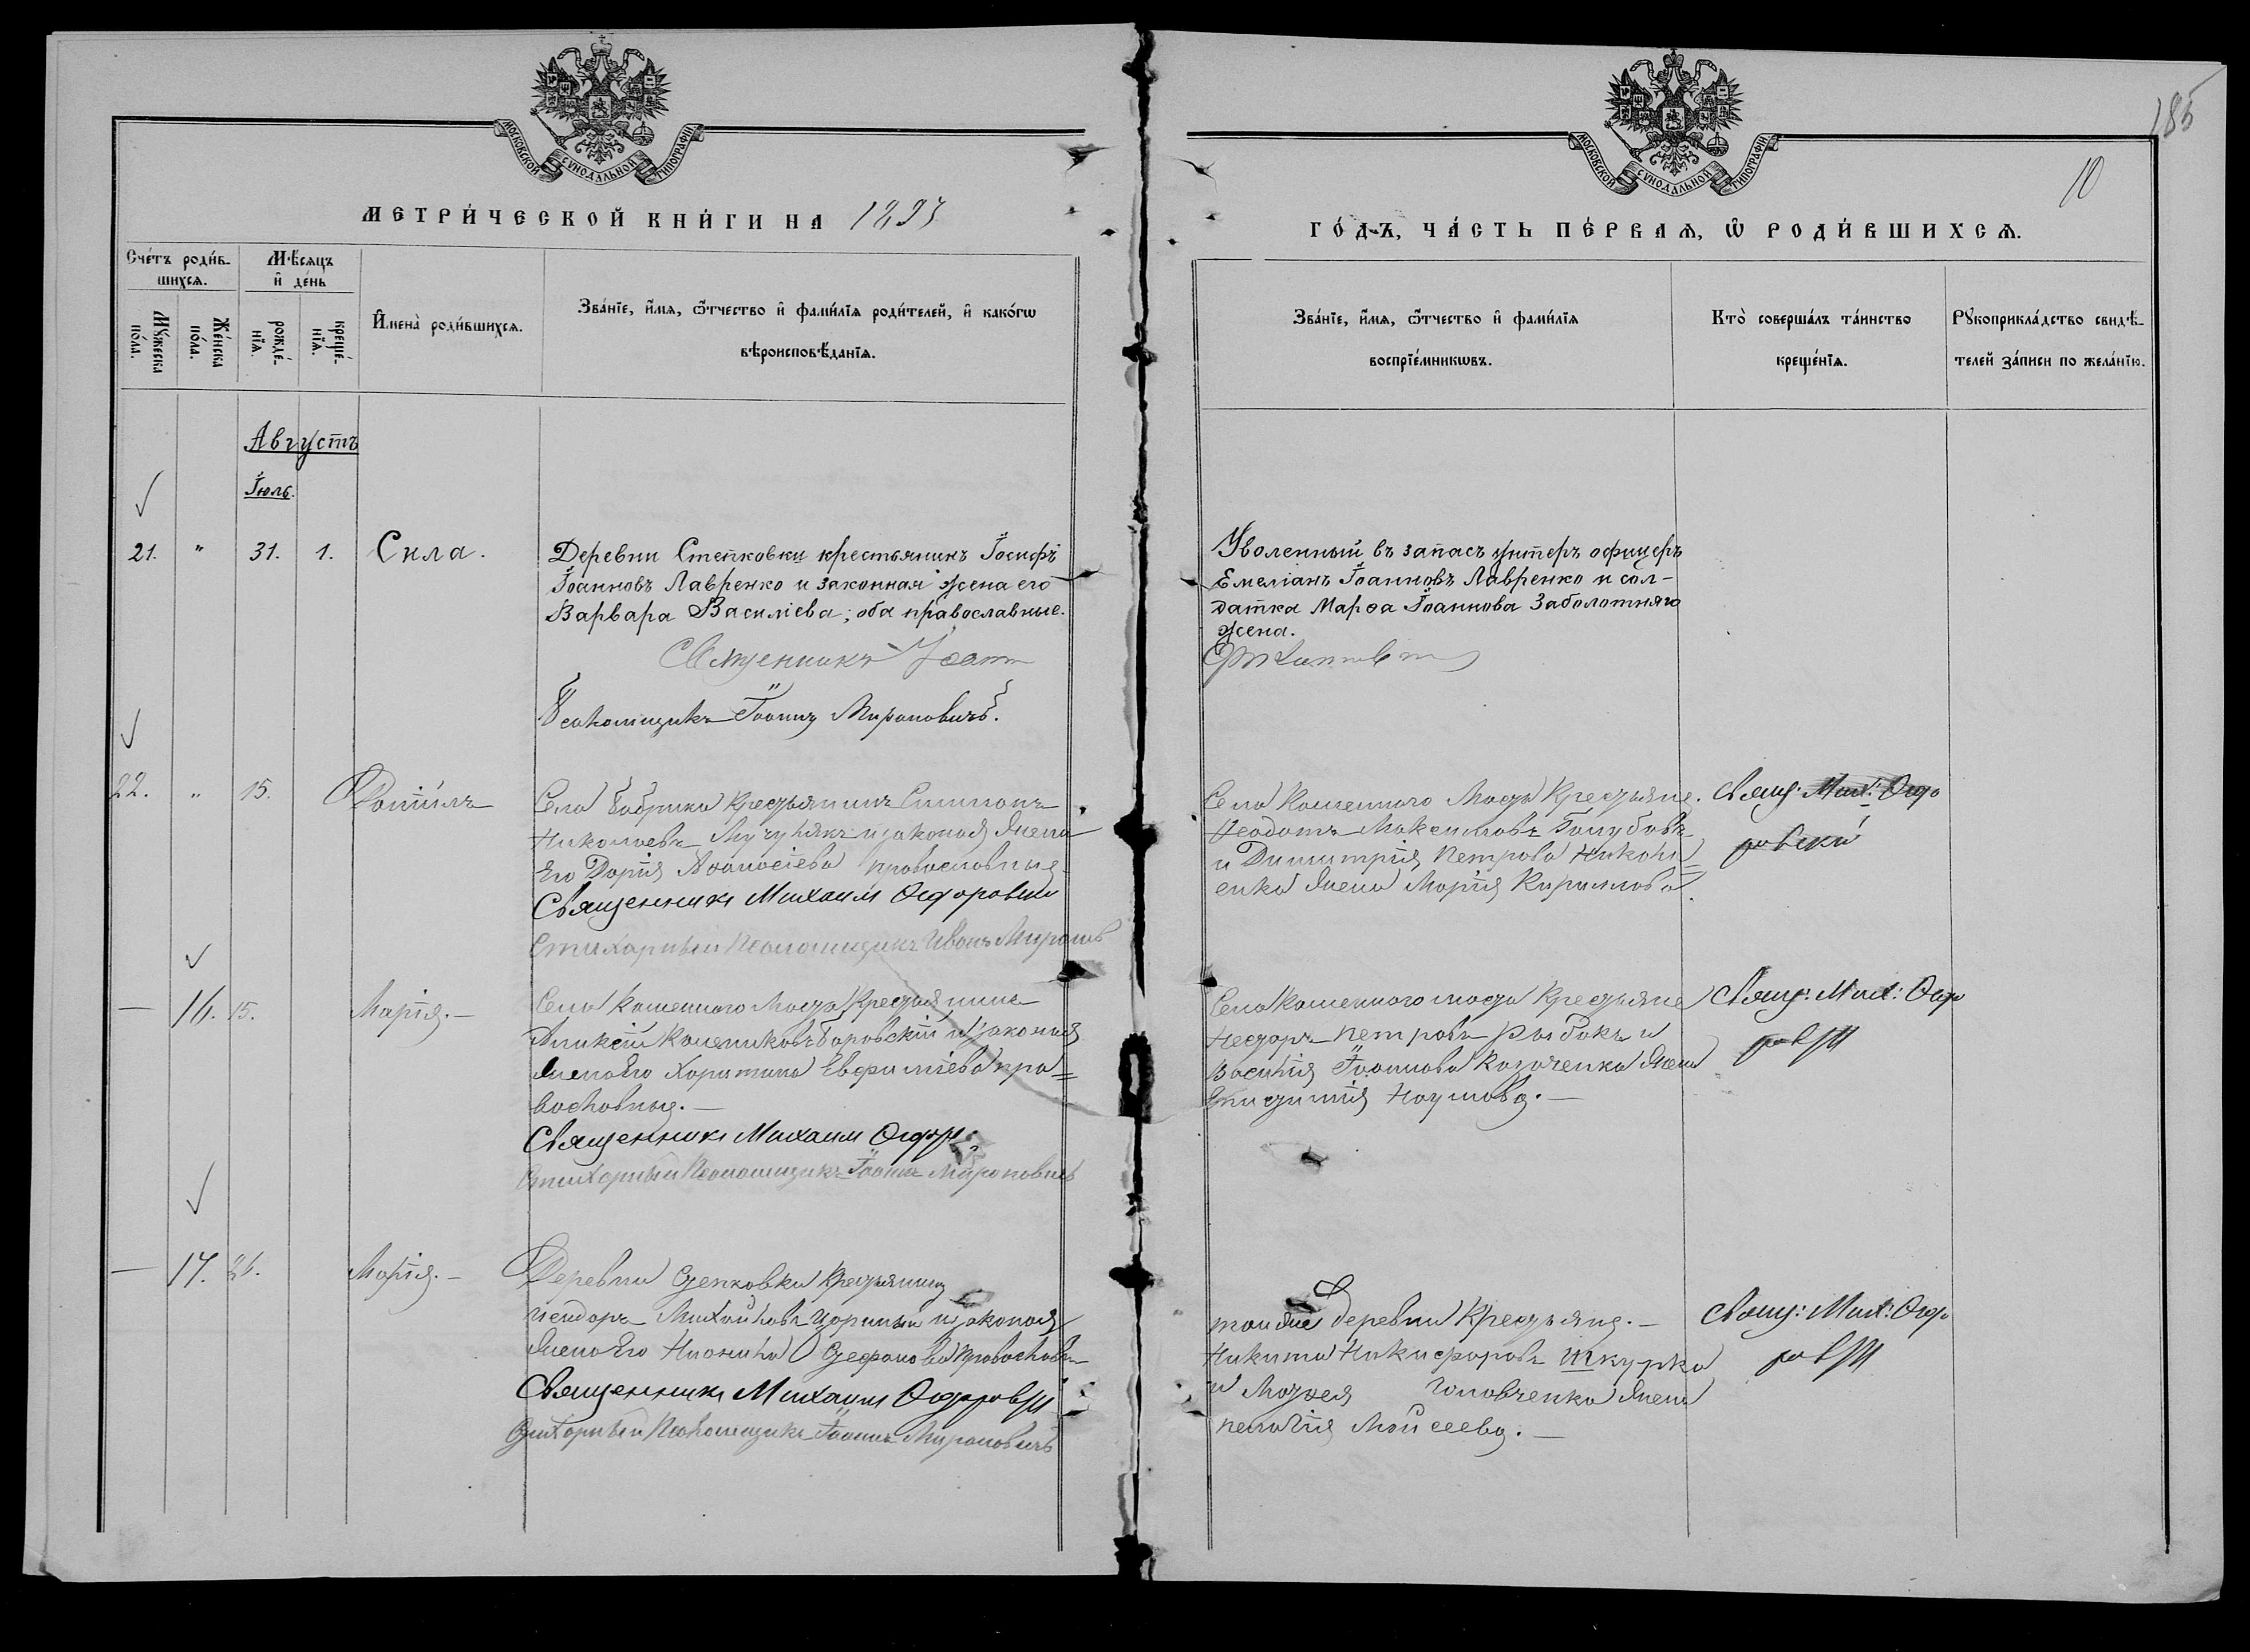 МОСКОВСКОЙ СѴНОДАЛЬНОЙ ТИПОГРАФІИ
МЕТРИ́ЧЕСКОЙ КНИ́ГИ НА 1893
Сче́тъ роди́вшихсѧ.
Мꙋ́жеска по́ла.
Же́нска по́ла.
Мѣ́сѧцъ и҆ де́нь
рожде́нїѧ.
креще́нїѧ.
И҆мена̀ роди́вшихсѧ.
Зва́нїе, и҆́мѧ, ѻ҆́тчество и҆ фами́лїѧ роди́телей, и҆ како́гѡ
вѣроисповѣ́данїѧ.
Августъ
Іюль.
21. " 31. 1. Сила.
Деревни Степковки крестьянинъ Іосифъ
Іоанновъ Лавренко и законная жена его
Варвара Василіева; оба православные.
Священникъ Іоанн
Псаломщикъ Іоаннъ Мироновичъ.
22. " 15.
Села Фабрики Крестьянинъ Симеонъ
Николаевъ и законая Жена
Его Дарія Афанасіева православныя
Священникъ Михаилъ Ѳедоровскій
Стихарный Псаломщикъ Иванъ Миронов
— 16. 15. Марія. —
Села Каменного Моста Крестьянинъ
Аликсій Боровскій и законая
Жена Его Харитина Евфиміева пра=
вославныя. —
Священникъ Михаилъ Ѳедор
Стихарный Псаломщикъ Іоаннъ Мироновичъ
— 17. Марія. —
Деревни Степковки Крестьянинъ
Михайловъ и законая
Жена Его Стефанова Православны
Священникъ Михаилъ Ѳедоров
Стихарный Псаломщикъ Іоаннъ Мироновичъ
185
10
МОСКОВСКОЙ СѴНОДАЛЬНОЙ ТИПОГРАФІИ
ГО́ДЪ, ЧА́СТЬ ПЕ́РВАѦ, Ѡ҆ РОДИ́ВШИХСѦ.
Зва́нїе, и҆́мѧ, ѻ҆́тчество и҆ фами́лїѧ
воспрїе́мникѡвъ.
Кто̀ соверша́лъ та́инство
креще́нїѧ.
Рꙋкоприкла́дство свидѣ́-
телей за́писи по жела́нїю.
Уволенный въ запасъ унтеръ офицеръ
Емеліанъ Іоанновъ Лавренко и сол-
датка Марѳа Іоаннова Заболотняго
жена.
Села Каменного Моста Крестьяне.
Феодотъ Максимовъ Голубовъ
и Димитрія Петрова Никон
енка Жена Марія Кирилова.
Свящ: Мих: Ѳедо
ровский
Села Каменного моста Крестьяне
Феодоръ Петровъ Рыбакъ и
Василія Іоаннова Козаченка Жена
Наумова. —
Свящ: Мих: Ѳедо
ров
тойже Деревни Крестьяне. —
Никита Никифоровъ Шкурка
и Мозжея Головченка Жена
Пелагія Мойсеева. —
Свящ: Мих: Ѳедо
ров